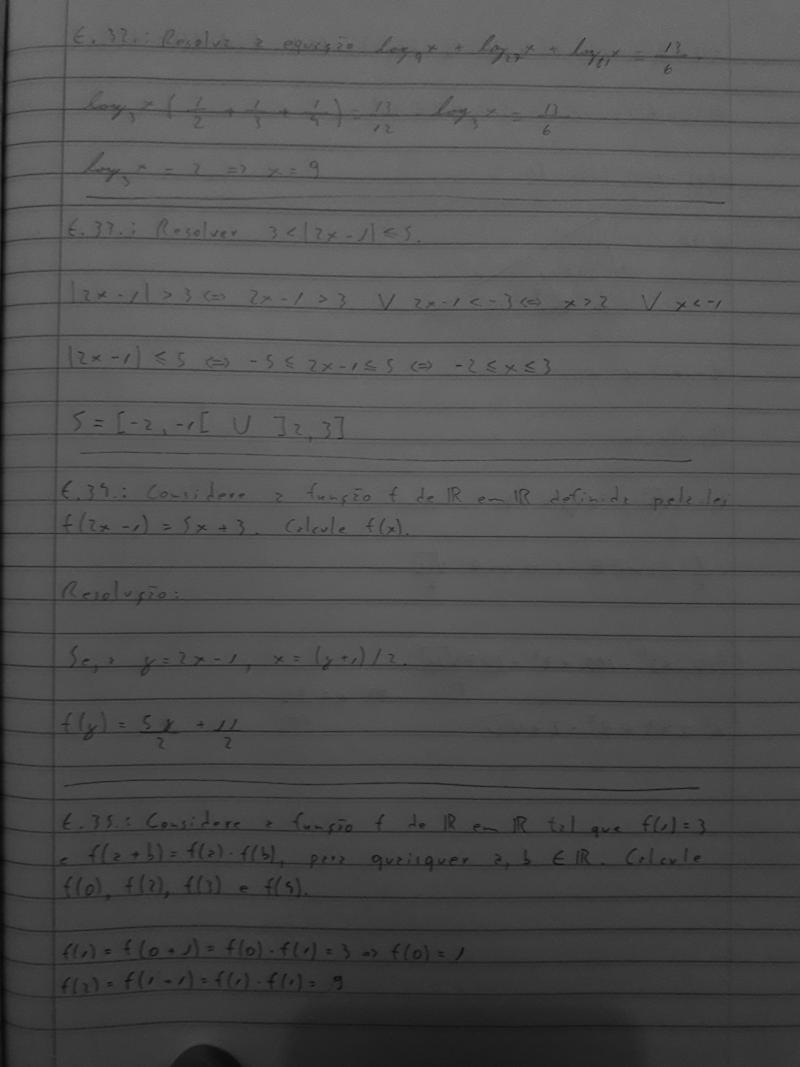 E.32.: Resolva a equação log₉x + log₂₇x + log₈₁x = 13/6.
log₃x (1/2 + 1/3 + 1/4) = 13/12 · log₃x = 13/6
log₃x = 2 => x = 9
E.33.: Resolver 3 < |2x - 1| ≤ 5.
|2x - 1| > 3 <=> 2x - 1 > 3 V 2x - 1 < -3 <=> x > 2 V x < -1
|2x - 1| ≤ 5 <=> -5 ≤ 2x - 1 ≤ 5 <=> -2 ≤ x ≤ 3
S = [-2, -1[ U ]2, 3]
E.34.: Considere a função f de ℝ em ℝ definida pela lei
f(2x - 1) = 5x + 3. Calcule f(x).
Resolução:
Seja y = 2x - 1, x = (y + 1) / 2.
f(y) = 5y/2 + 11/2
E.35.: Considere a função f de ℝ em ℝ tal que f(1) = 3
e f(a + b) = f(a) · f(b), para quaisquer a, b ∈ ℝ. Calcule
f(0), f(2), f(3) e f(5).
f(1) = f(0 + 1) = f(0) · f(1) = 3 => f(0) = 1
f(2) = f(1 + 1) = f(1) · f(1) = 9